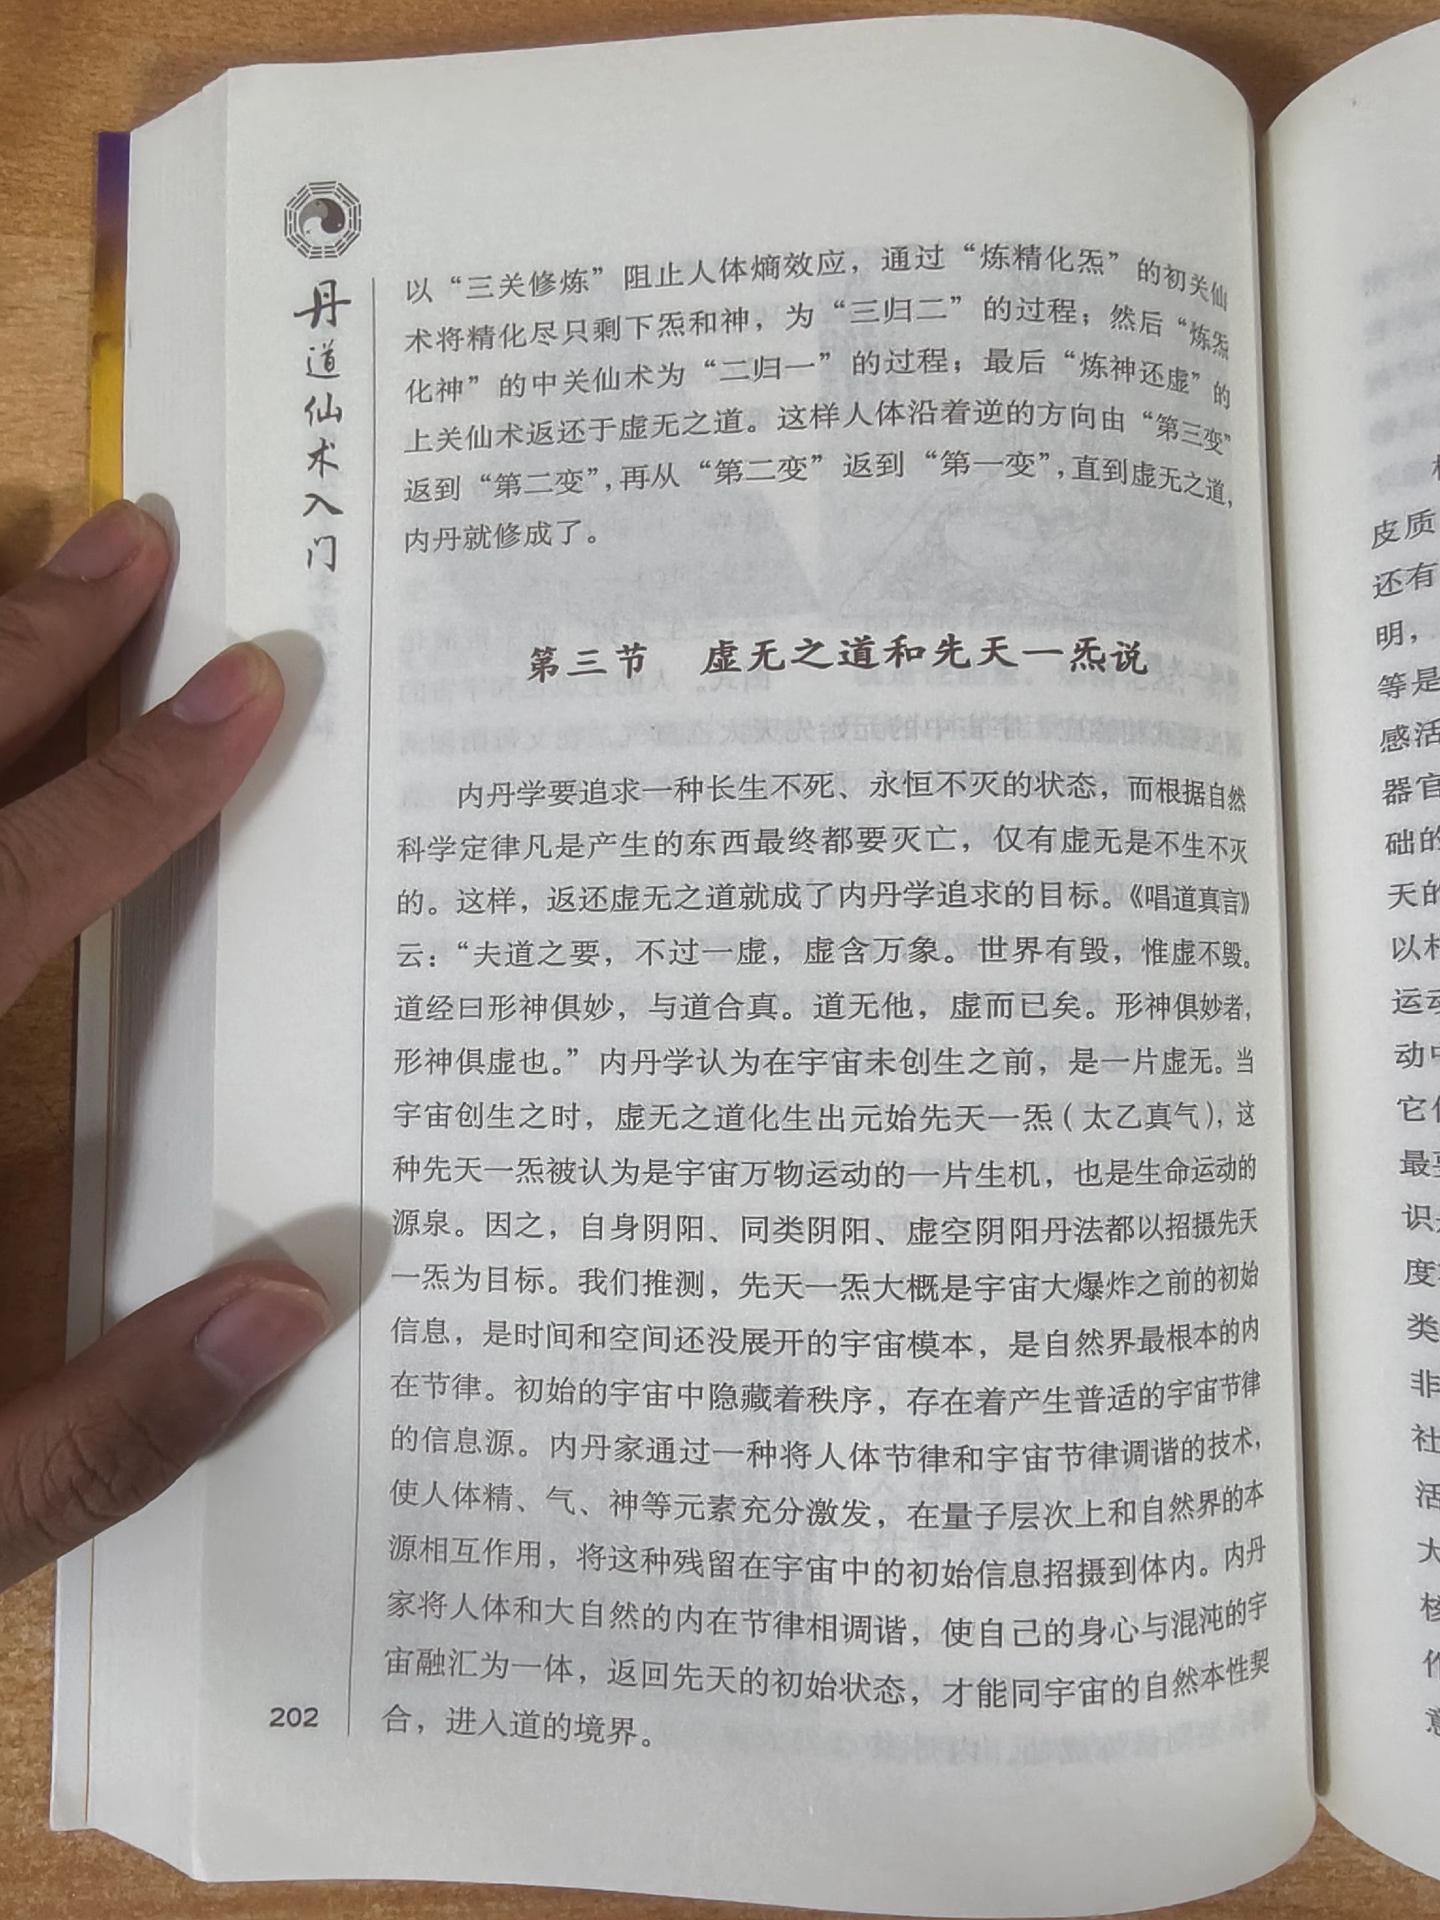 丹道仙术入门
以“三关修炼”阻止人体熵效应，通过“炼精化炁”的初关仙
术将精化尽只剩下炁和神，为“三归二”的过程；然后“炼炁
化神”的中关仙术为“二归一”的过程；最后“炼神还虚”的
上关仙术返还于虚无之道。这样人体沿着逆的方向由“第三变”
返到“第二变”，再从“第二变”返到“第一变”，直到虚无之道，
内丹就修成了。
第三节 虚无之道和先天一炁说
内丹学要追求一种长生不死、永恒不灭的状态，而根据自然
科学定律凡是产生的东西最终都要灭亡，仅有虚无是不生不灭
的。这样，返还虚无之道就成了内丹学追求的目标。《唱道真言》
云：“夫道之要，不过一虚，虚含万象。世界有毁，惟虚不毁。
道经曰形神俱妙，与道合真。道无他，虚而已矣。形神俱妙者，
形神俱虚也。”内丹学认为在宇宙未创生之前，是一片虚无。当
宇宙创生之时，虚无之道化生出元始先天一炁（太乙真气），这
种先天一炁被认为是宇宙万物运动的一片生机，也是生命运动的
源泉。因之，自身阴阳、同类阴阳、虚空阴阳丹法都以招摄先天
一炁为目标。我们推测，先天一炁大概是宇宙大爆炸之前的初始
信息，是时间和空间还没展开的宇宙模本，是自然界最根本的内
在节律。初始的宇宙中隐藏着秩序，存在着产生普适的宇宙节律
的信息源。内丹家通过一种将人体节律和宇宙节律调谐的技术，
使人体精、气、神等元素充分激发，在量子层次上和自然界的本
源相互作用，将这种残留在宇宙中的初始信息招摄到体内。内丹
家将人体和大自然的内在节律相调谐，使自己的身心与混沌的宇
宙融汇为一体，返回先天的初始状态，才能同宇宙的自然本性契
合，进入道的境界。
202
皮质
还有
明，
等是
感活
器官
础的
天的
以
运动
动中
它
最
识
度
类
非
社
活
大
核
作
意